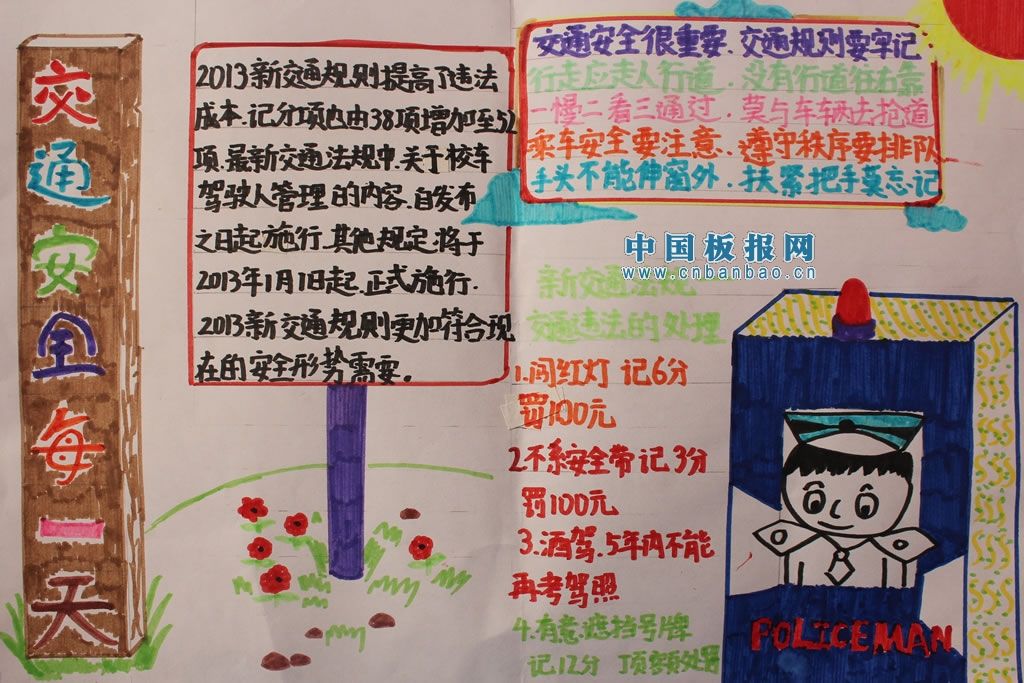 交通安全每一天
2013新交通规则提高了违法
成本.记分项也由38项增加至52
项.最新交通法规中.关于校车
驾驶人管理的内容.自发布
之日起施行.其他规定将于
2013年1月1日起.正式施行.
2013新交通规则更加符合现
在的安全形势需要。
交通安全很重要.交通规则要牢记
行走应走人行道.没有行道往右靠
一慢二看三通过.莫与车辆去抢道
乘车安全要注意.遵守秩序要排队
手头不能伸窗外.扶紧把手莫忘记
中国板报网
www.cnbanbao.cn
新交通法规
交通违法的处理
1.闯红灯 记6分
罚100元
2.不系安全带记3分
罚100元
3.酒驾.5年内不能
再考驾照
4.有意遮挡号牌
记12分 顶额处罚
POLICEMAN